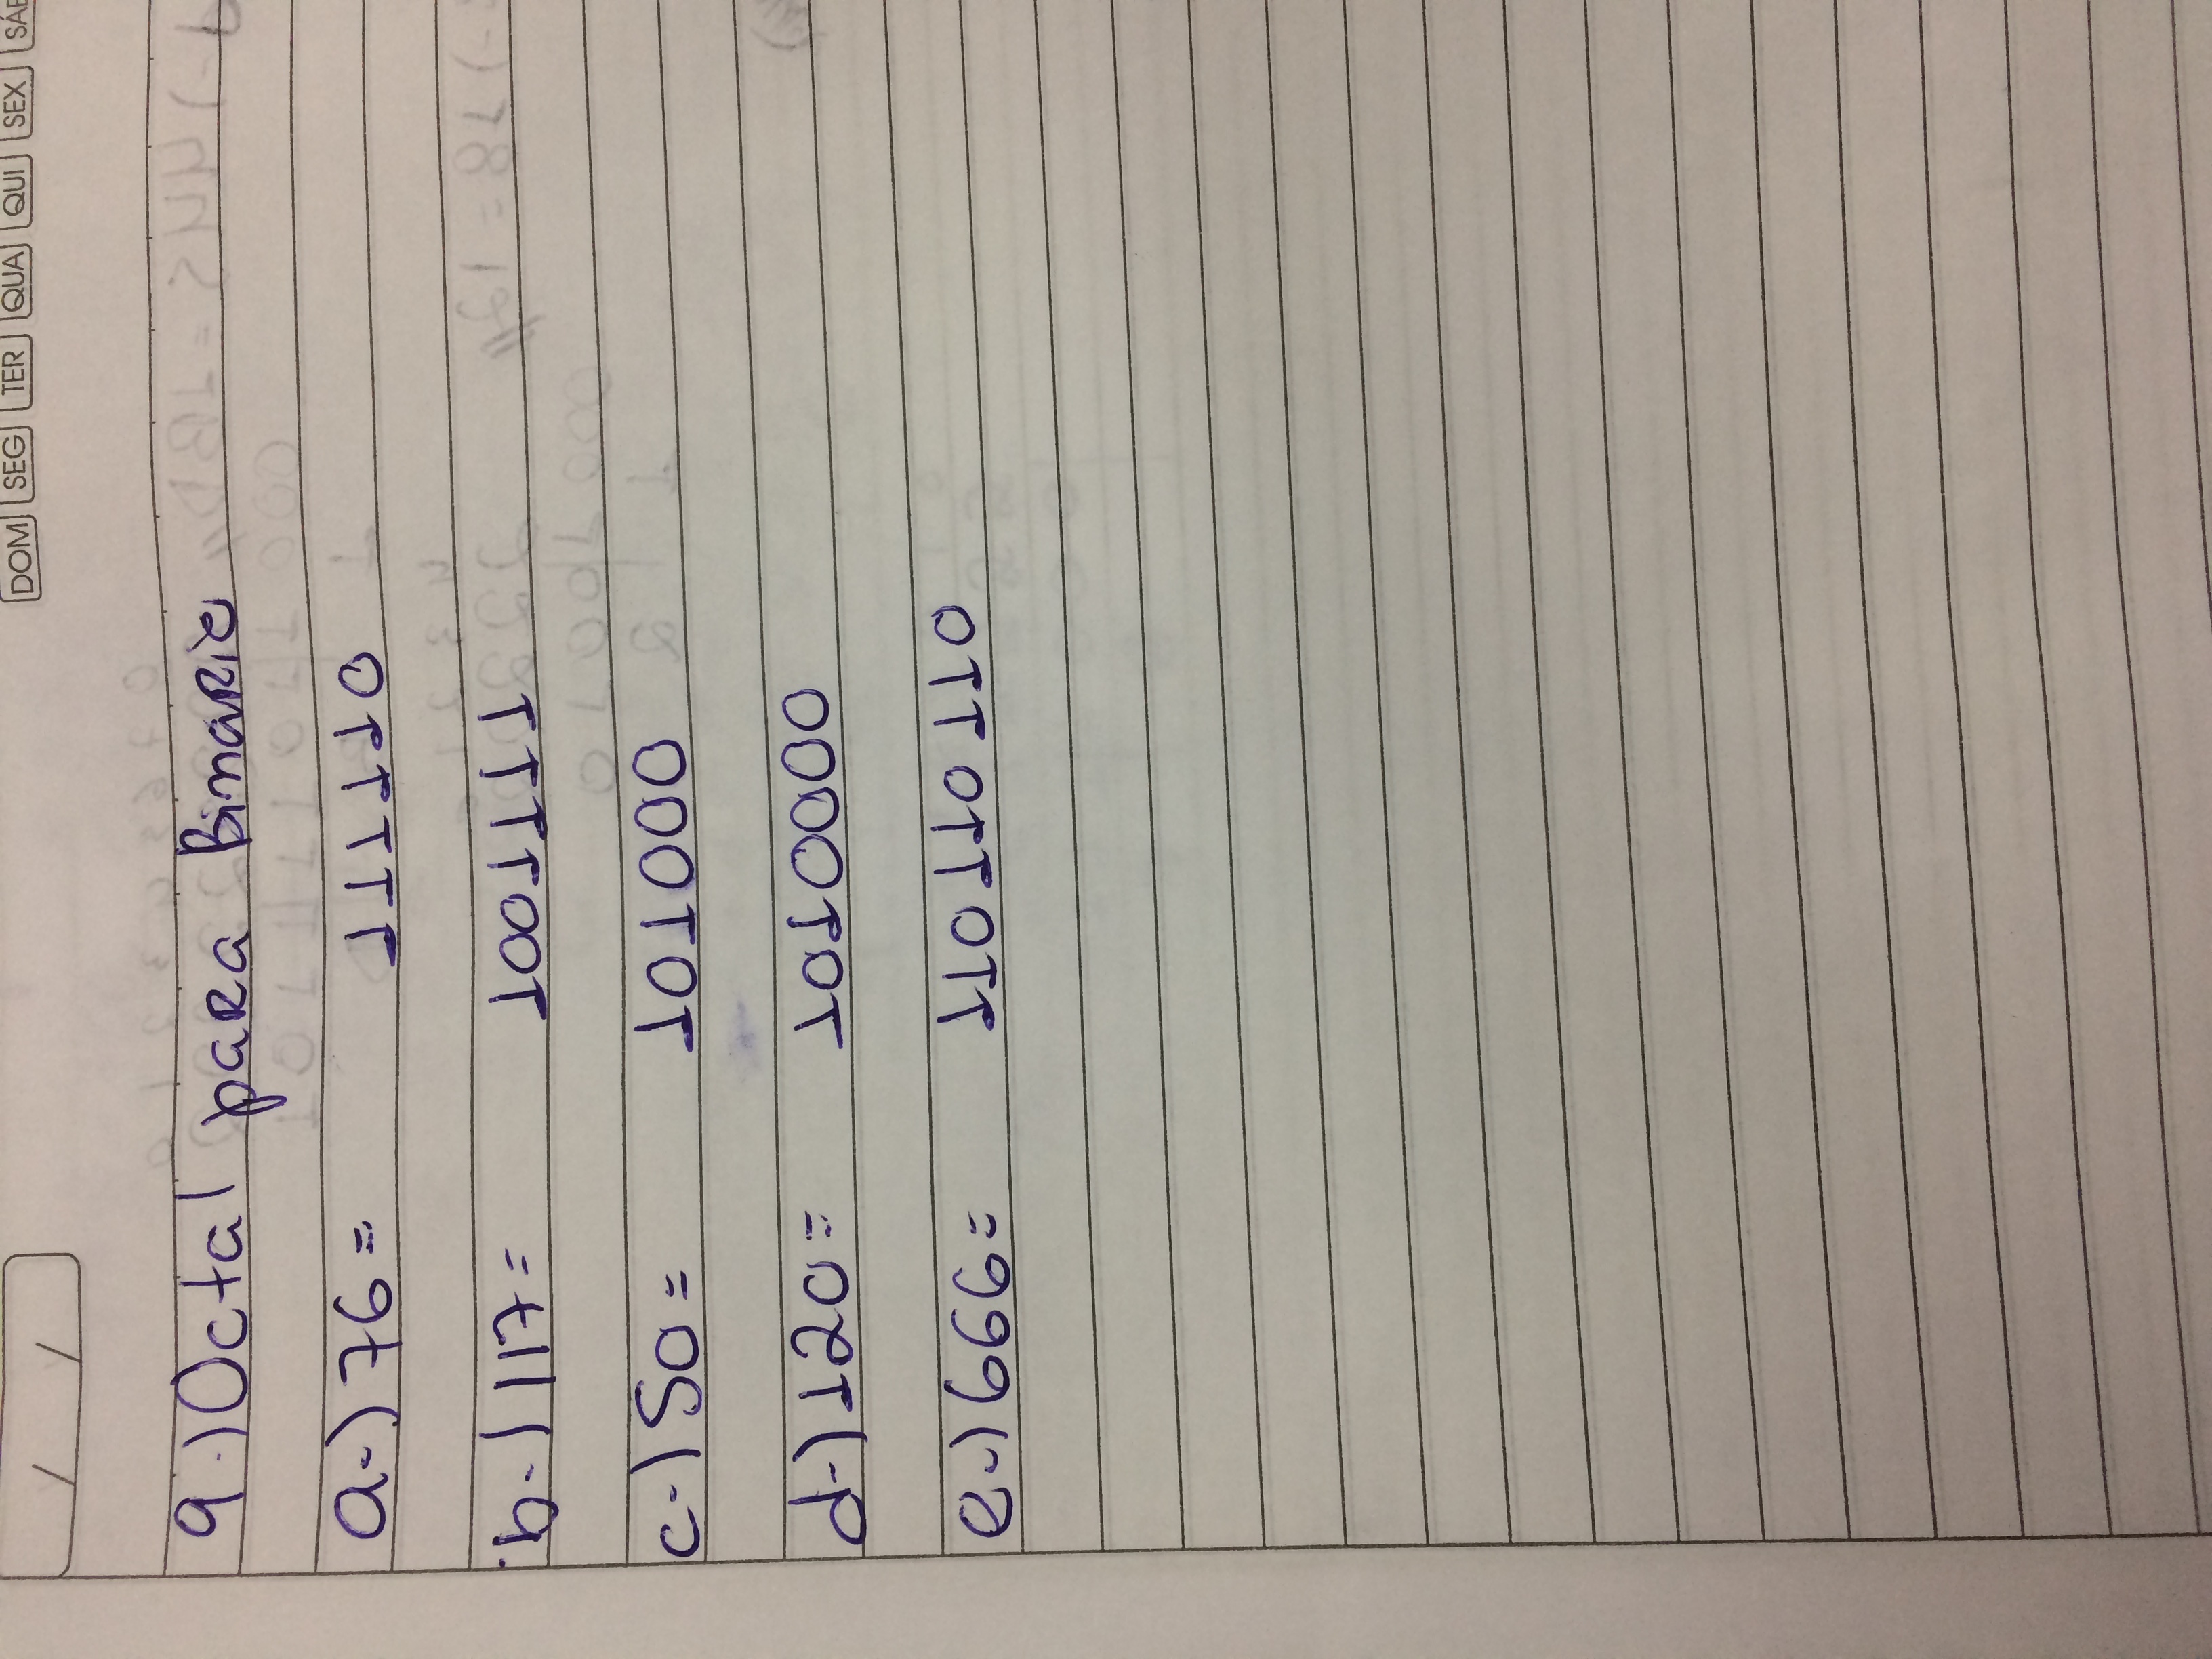 DOM SEG TER QUA QUI SEX SÁB
/ /
9.) Octal para Binario
a-) 76 = 111110
b-) 117 = 1001111
c-) 50 = 101000
d-) 120 = 1010000
e-) 666 = 110110110